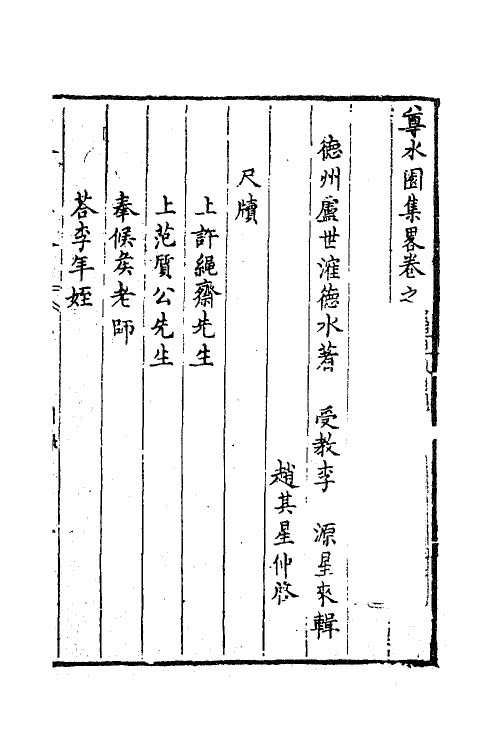 尊水園集畧卷之
德州盧世㴶德水著　受教李　源星來輯
趙其星仲啓
尺牘
上許繩齋先生
上范質公先生
奉候矦老師
荅李年姪